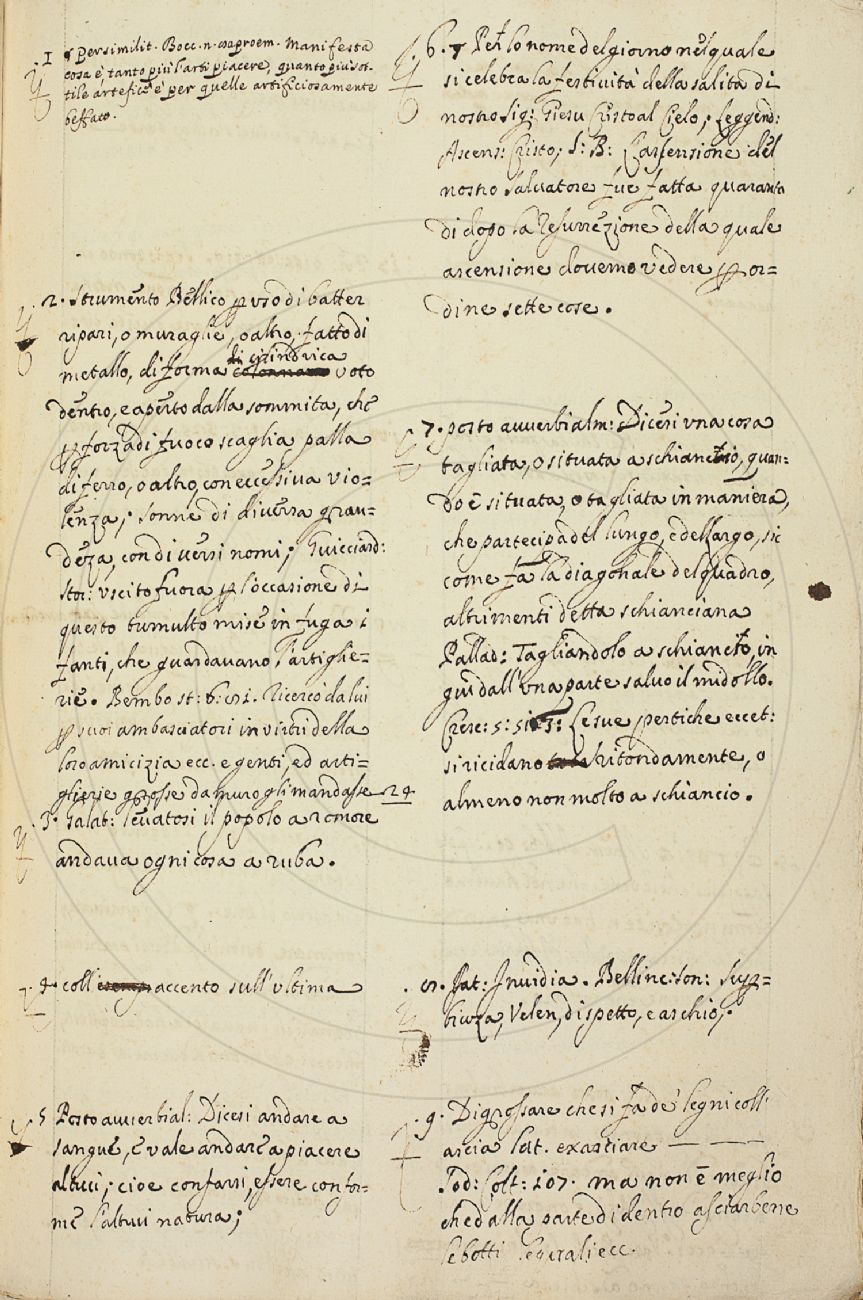 1 § per similit. Bocc. n. 80 proem. Manifesta
cosa è, tanto più l'arti piacere, quanto più sot-
tile artefice è per quelle artificiosamente
beffato.
2. Strumento Bellico p uso di batter
ripari, o muraglie, o altro, fatto di
metallo, di forma di cilindrica voto
dentro, e aperto dalla sommita, che
p forza di fuoco scaglia palla
di ferro, o altro, con eccessiva vio=
lenza; sonne di diversa gran=
deza, con diversi nomi; Guicciard:
stor: uscito fuora p l'occasione di
questo tumulto mise in fuga i
fanti, che guardavano l'artiglie=
rie. Bembo st: 6: 81. Ricercò da lui
p suoi ambasciatori in virtù della
loro amicizia ecc. e genti, ed arti=
glierie grosse da muro gli mandasse 24
3. Galat: levatosi il popolo a romore
andava ogni cosa a ruba.
4. coll' accento sull'ultima
5 Posto avverbial: Dicesi andare a
sangue, e vale andare a piacere
altrui; cioe confarsi, essere confor=
me l'altrui natura;
6. § Per lo nome del giorno nel quale
si celebra la festività della salita di
nostro Sig: Giesu Cristo al Cielo; Leggend:
Ascens: Cristo; S: B: L'ascensione del
nostro Salvatore fue fatta quaranta
di dopo la Resurrezione della quale
ascensione dovemo vedere p or=
dine sette cose.
7. posto avverbialm: Dicesi una cosa
tagliata, o situata a schiancio, quan=
do è situata, o tagliata in maniera,
che partecipa del lungo, e del largo, sic
come fa la diagonale del quadro,
altrimenti detta schianciana
Pallad: Tagliandolo a schiancio, in
guisa dall'una parte salvo il midollo.
Cresc: 5: 51: 3: Le sue pertiche eccet:
si ricidano ritondamente, o
almeno non molto a schiancio.
8. Lat: Invidia. Bellinc: son: Sup=
bieza, Velen, dispetto, e aschio;
9. Digrossare che si fa de' legni coll'
ascia Lat. exasciare
Sod: Colt: 107. ma non è meglio
che dalla parte di dentro asciar bene
le botti ecc.